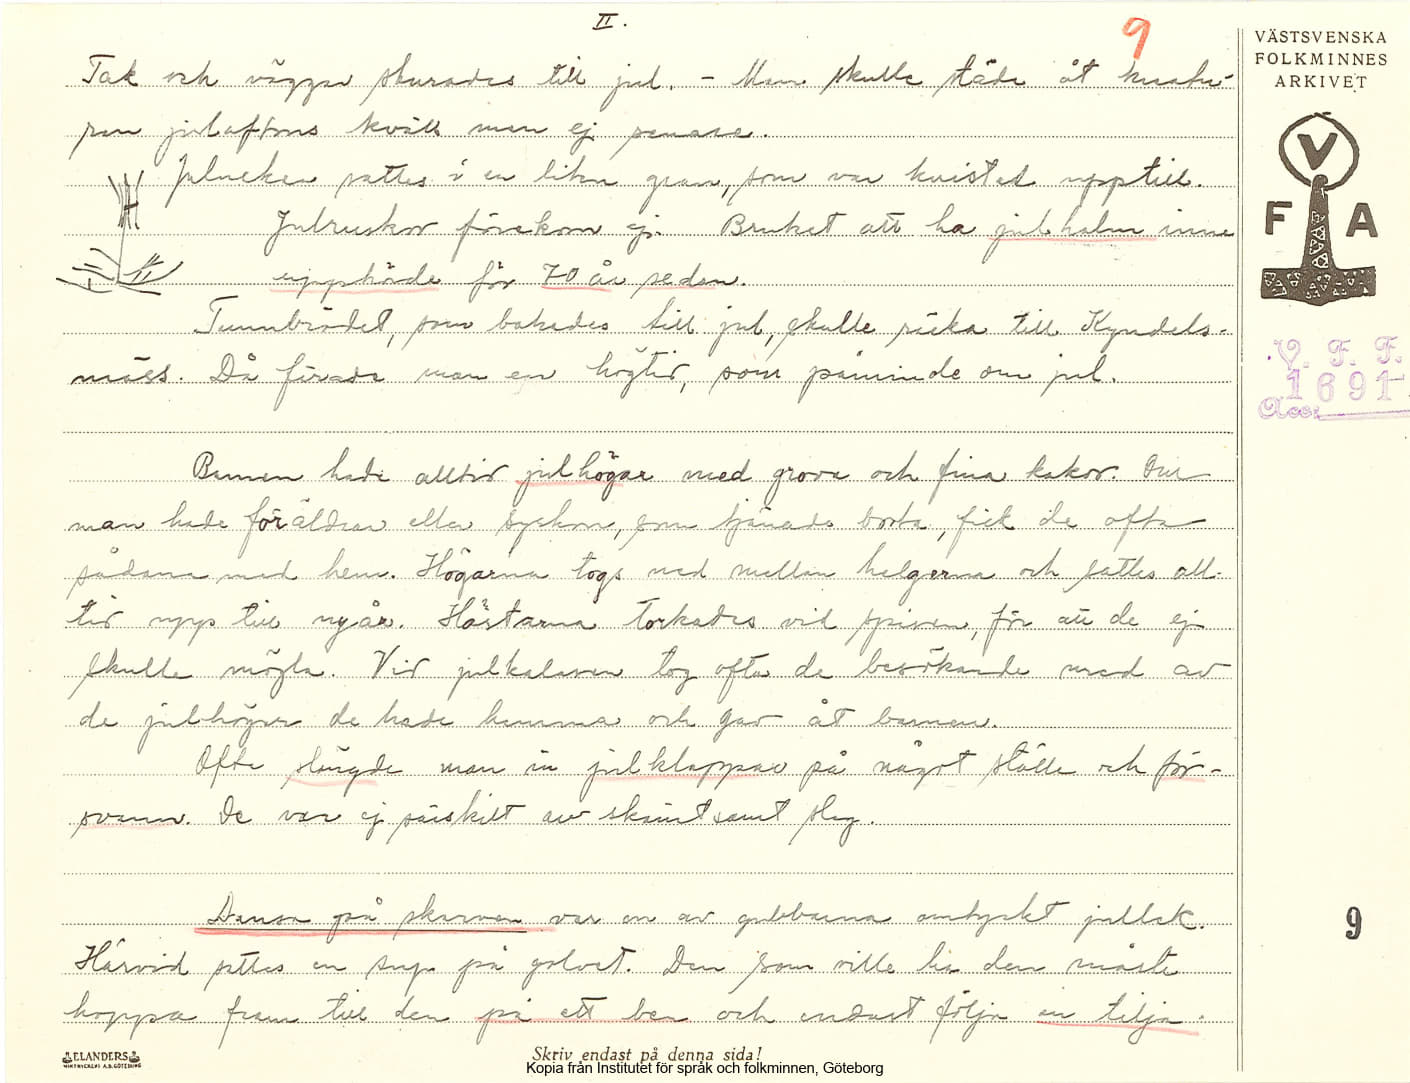 II.
9
Tak och väggar skurades till jul. - Man skulle städa åt kreatu-
ren julaftons kväll men ej senare.
Julneken sattes i en liten gran, som var kvistad upptill.
Julruskor förekom ej. Bruket att ha julhalm inne
upphörde för 70 år sedan.
Tunnbrödet, som bakades till jul, skulle räcka till Kyndels-
mäss. Då firade man en högtid, som påminde om jul.
Barnen hade alltid julhögar med grova och fina kakor. Om
man hade föräldrar eller syskon, som tjänade borta, fick de ofta
sådana med hem. Högarna togs ned mellan helgerna och sattes all-
tid upp till nyår. Hästarna torkades vid spisen, för att de ej
skulle mögla. Vid julkalasen tog ofta de besökande med av
de julhögar de hade hemma och gav åt barnen.
Ofta slängde man in julklappar på något ställe och för-
svann. De var ej särskilt av skämtsamt slag.
Dansa på skarven var en av gubbarna omtyckt jullek.
Härvid sattes en sup på golvet. Den som ville ha den måste
hoppa fram till den på ett ben och endast följa en tilja.
VÄSTSVENSKA
FOLKMINNES
ARKIVET
V
F A
V. F. F.
1691
Acc.
9
ELANDERS
Skriv endast på denna sida!
Kopia från Institutet för språk och folkminnen, Göteborg